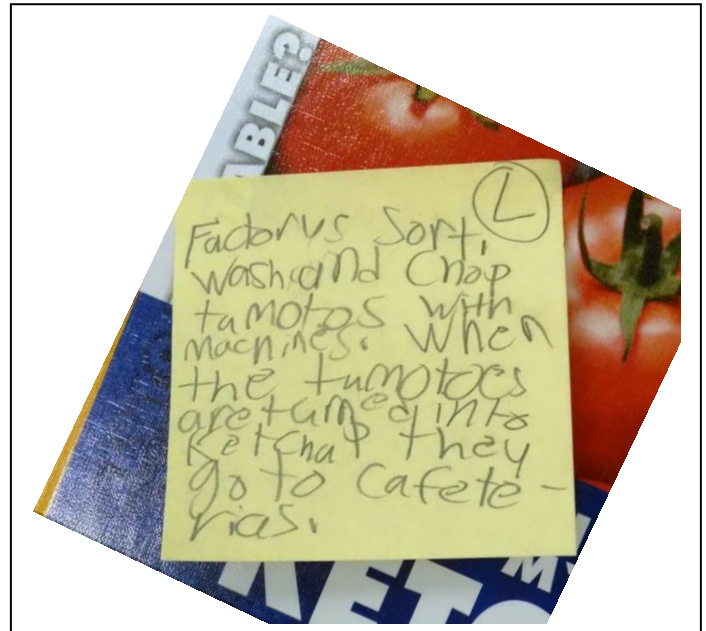 ABLE?
L
Factorys Sort,
wash and Chop
tamotos with
machines. When
the tumotoes
are turned into
Ketchap they
go to Cafete-
rias.
M
KETC